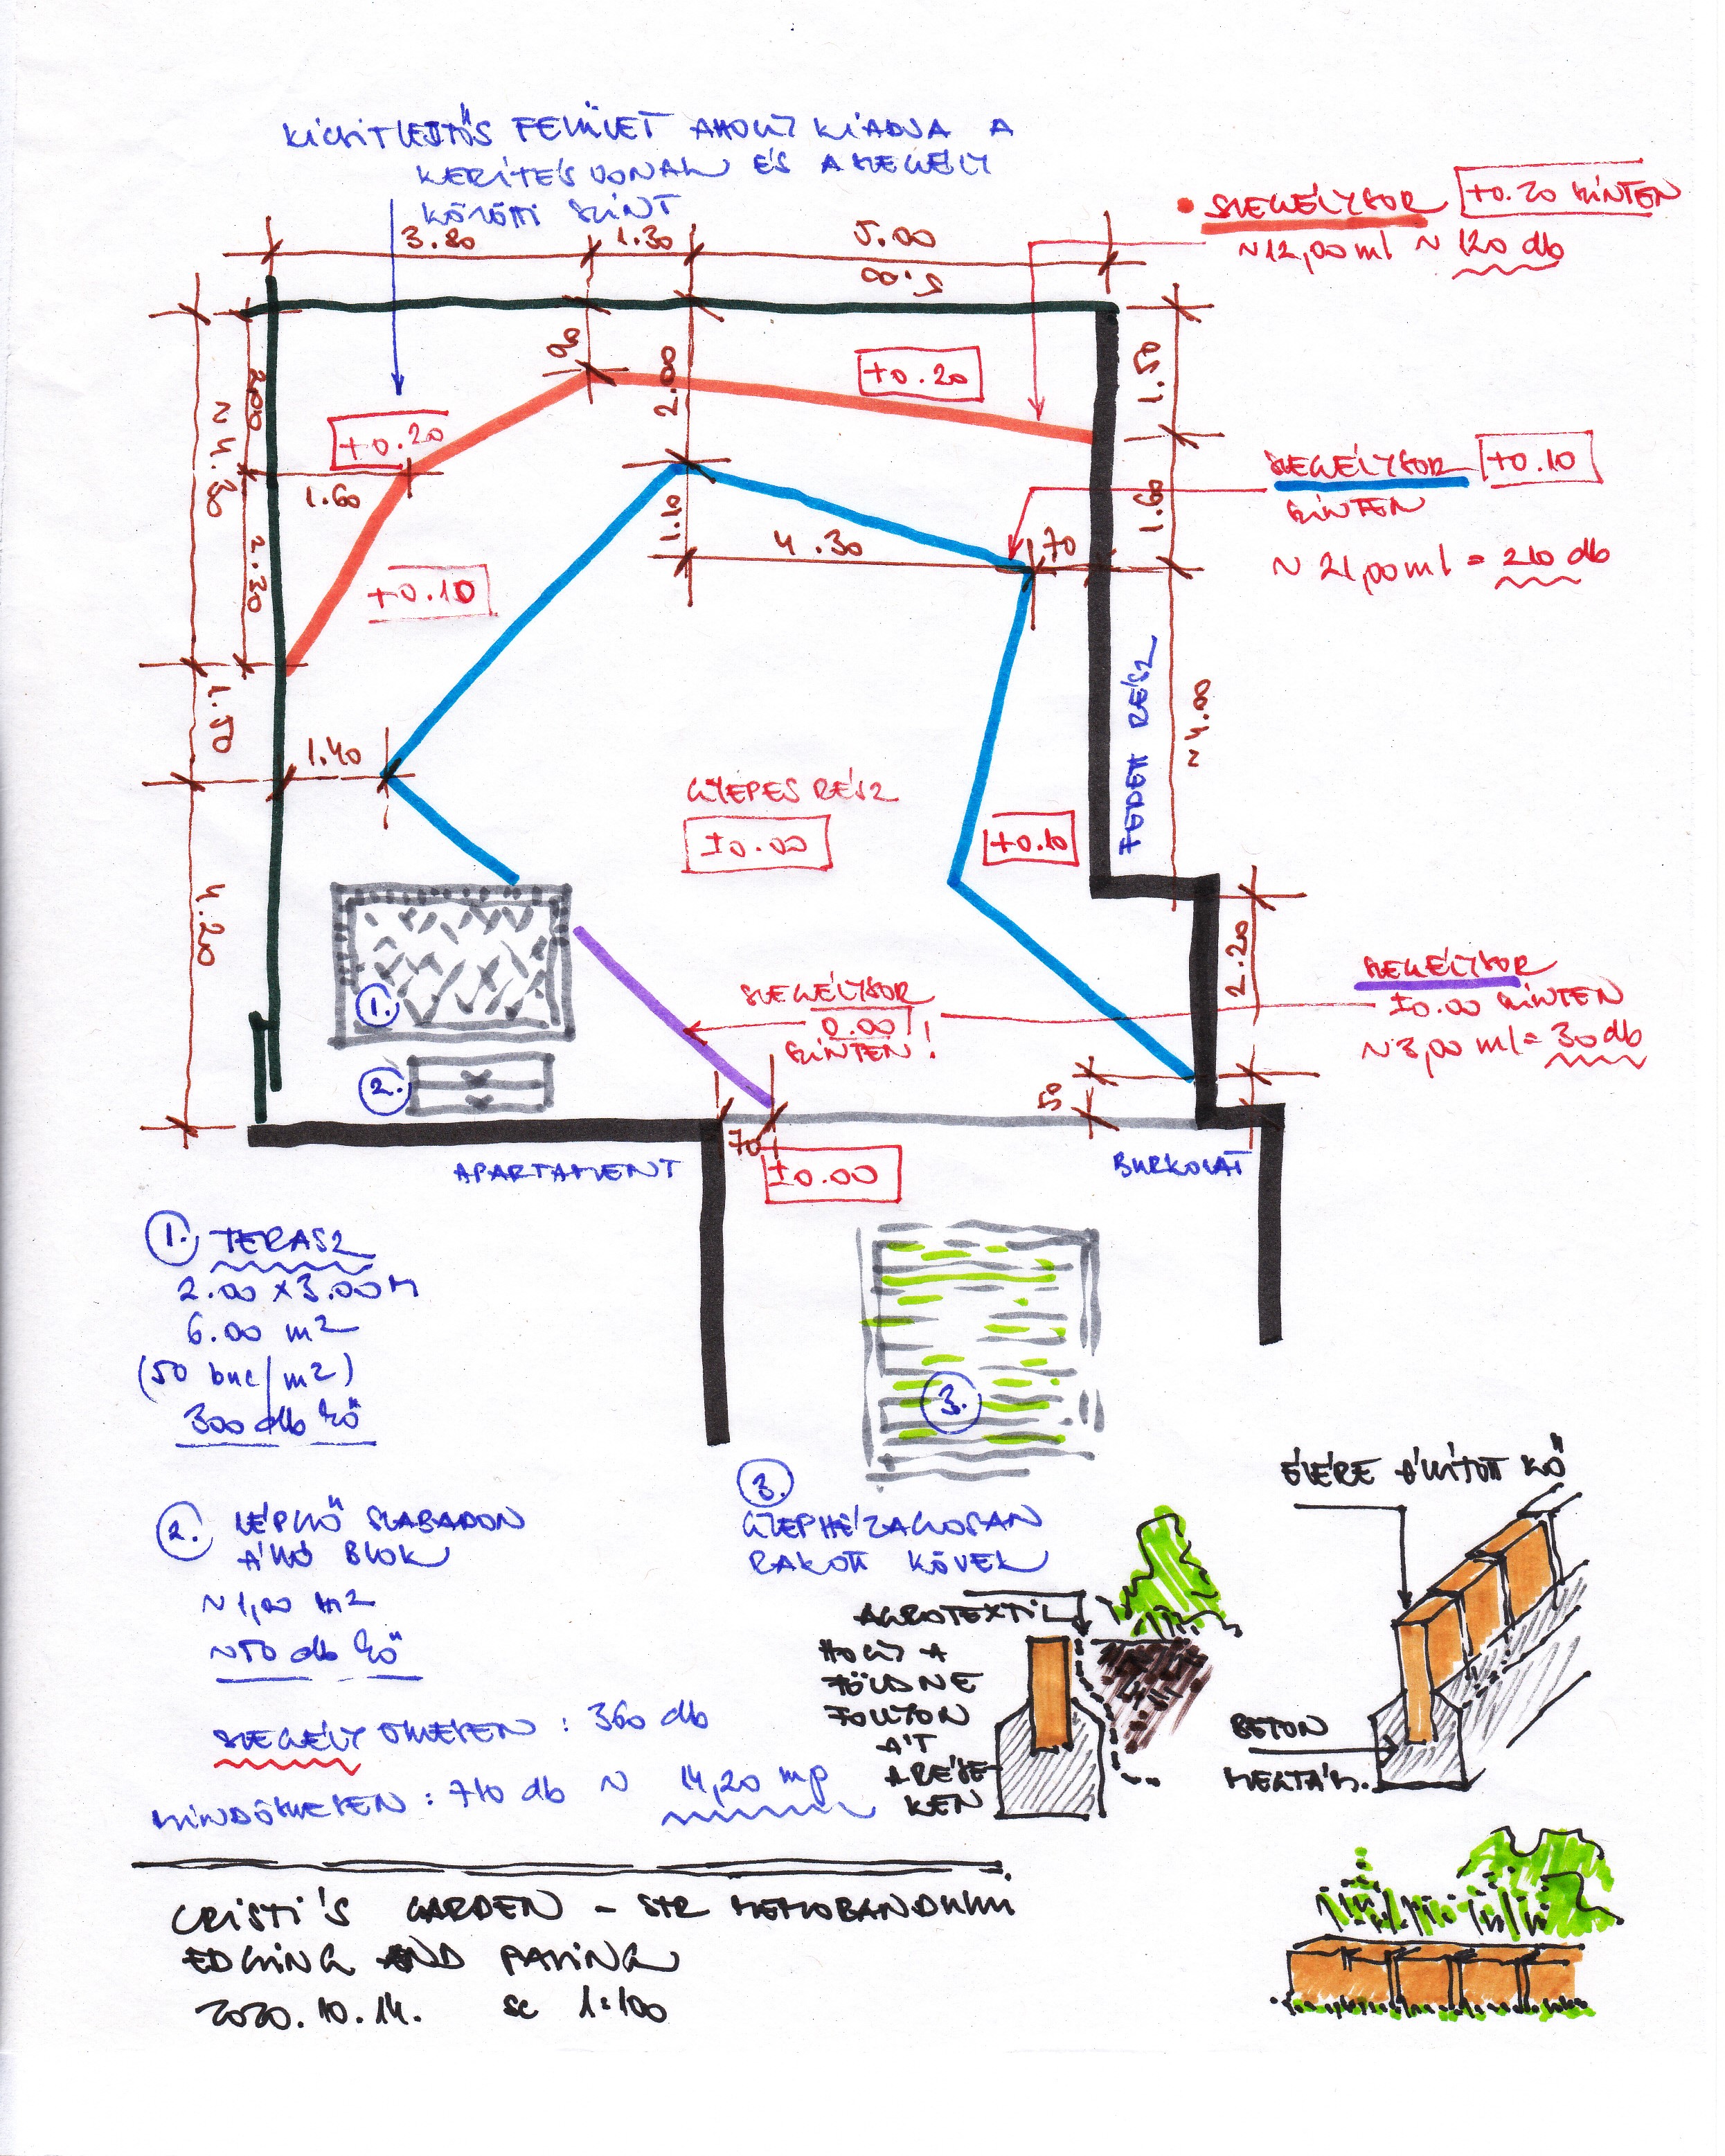 KICSIT LEJTŐS FELÜLET AHOGY KIADJA A
KERITÉS VONAL ÉS A SZEGÉLY
KÖZÖTTI SZINT
3.80
1.30
5.00
5.00
• SZEGÉLYSOR +0.20 SZINTEN
~12,00 ml ~ 120 db
90
2.00
+0.20
1.50
2.00
~4.30
+0.20
1.60
SZEGÉLYSOR +0.10
SZINTEN
~ 21,00 ml = 210 db
1.10
4.30
70
1.60
2.30
+0.10
1.50
1.40
FEDETT RÉSZ
~4.00
GYEPES RÉSZ
±0.00
+0.10
4.20
2.20
SZEGÉLYSOR
±0.00 SZINTEN
~3,00 ml = 30 db
SZEGÉLYSOR
0.00
SZINTEN!
1.
2.
50
70
±0.00
APARTAMENT
BURKOLAT
1. TERASZ
2.00 x 3.00 M
6.00 m2
(50 buc/m2)
300 db kő
3.
2. LÉPKŐ SZABADON
ÁLLÓ BLOK
~1,00 m2
~50 db kő
3.
GYEPHÉZAGOSAN
RAKOTT KÖVEK
ÉLÉRE ÁLLÍTOTT KŐ
AGROTEXTIL
HOGY A
FÖLD NE
FOLYJON
ÁT
A RÉSE-
KEN
BETON
MEGTÁM.
SZEGÉLY ÖSSZESEN : 360 db
MINDÖSSZESEN : 710 db ~ 14,20 mp
CRISTI'S GARDEN - STR MEMORANDUMU
EDGING AND PAVING
2020.10.14. SC 1:100